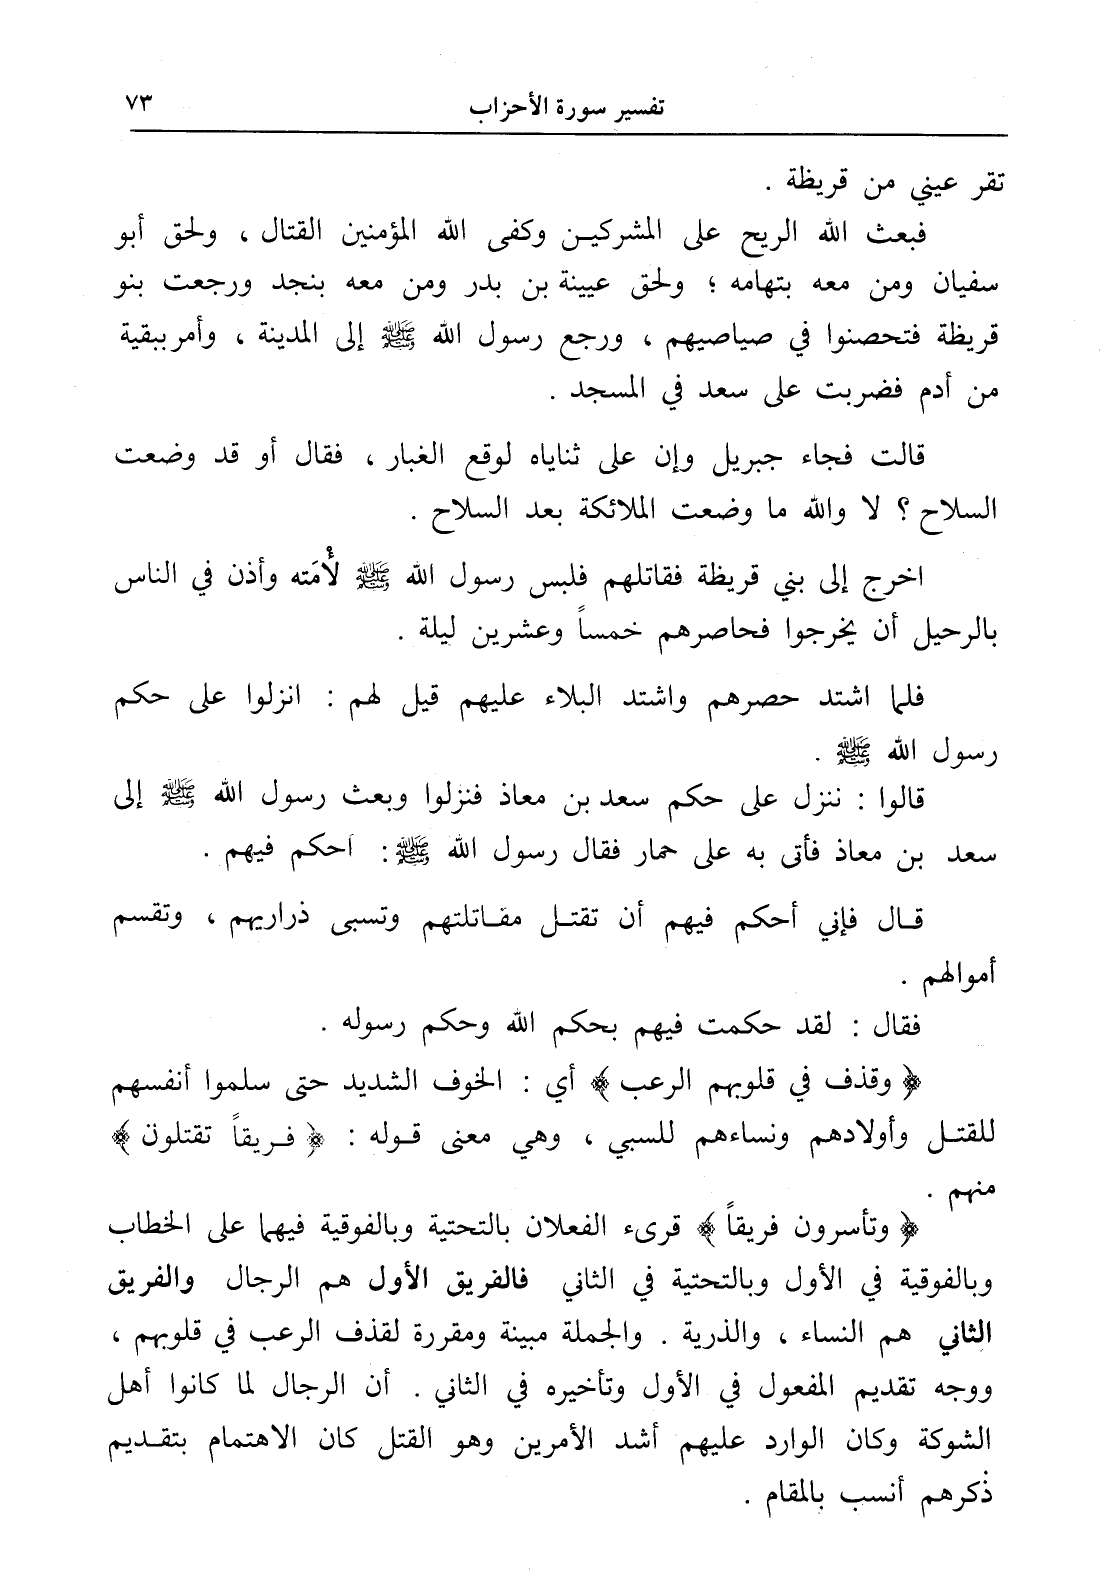 تفسير سورة الأحزاب ٧٣
تقر عيني من قريظة .
فبعث الله الريح على المشركين وكفى الله المؤمنين القتال ، ولحق أبو
سفيان ومن معه بتهامه ؛ ولحق عيينة بن بدر ومن معه بنجد ورجعت بنو
قريظة فتحصنوا في صياصيهم ، ورجع رسول الله ﷺ إلى المدينة ، وأمر ببقية
من أدم فضربت على سعد في المسجد .
قالت فجاء جبريل وإن على ثناياه لوقع الغبار ، فقال أو قد وضعت
السلاح ؟ لا والله ما وضعت الملائكة بعد السلاح .
اخرج إلى بني قريظة فقاتلهم فلبس رسول الله ﷺ لأْمَته وأذن في الناس
بالرحيل أن يخرجوا فحاصرهم خمساً وعشرين ليلة .
فلما اشتد حصرهم واشتد البلاء عليهم قيل لهم : انزلوا على حكم
رسول الله ﷺ .
قالوا : ننزل على حكم سعد بن معاذ فنزلوا وبعث رسول الله ﷺ إلى
سعد بن معاذ فأتى به على حمار فقال رسول الله ﷺ : احكم فيهم .
قال فإني أحكم فيهم أن تقتل مقاتلتهم وتسبى ذراريهم ، وتقسم
أموالهم .
فقال : لقد حكمت فيهم بحكم الله وحكم رسوله .
﴿ وقذف في قلوبهم الرعب ﴾ أي : الخوف الشديد حتى سلموا أنفسهم
للقتل وأولادهم ونساءهم للسبي ، وهي معنى قوله : ﴿ فريقاً تقتلون ﴾
منهم .
﴿ وتأسرون فريقاً ﴾ قرىء الفعلان بالتحتية وبالفوقية فيهما على الخطاب
وبالفوقية في الأول وبالتحتية في الثاني فالفريق الأول هم الرجال والفريق
الثاني هم النساء ، والذرية . والجملة مبينة ومقررة لقذف الرعب في قلوبهم ،
ووجه تقديم المفعول في الأول وتأخيره في الثاني . أن الرجال لما كانوا أهل
الشوكة وكان الوارد عليهم أشد الأمرين وهو القتل كان الاهتمام بتقديم
ذكرهم أنسب بالمقام .